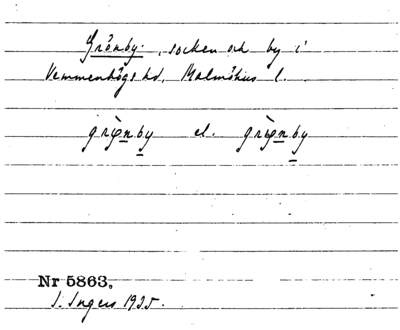 Grönby, socken och by i
Vemmenhögs hd, Malmöhus l.
grø̀nby el. grø̀nby
Nr 5863,
I. Ingers 1925.